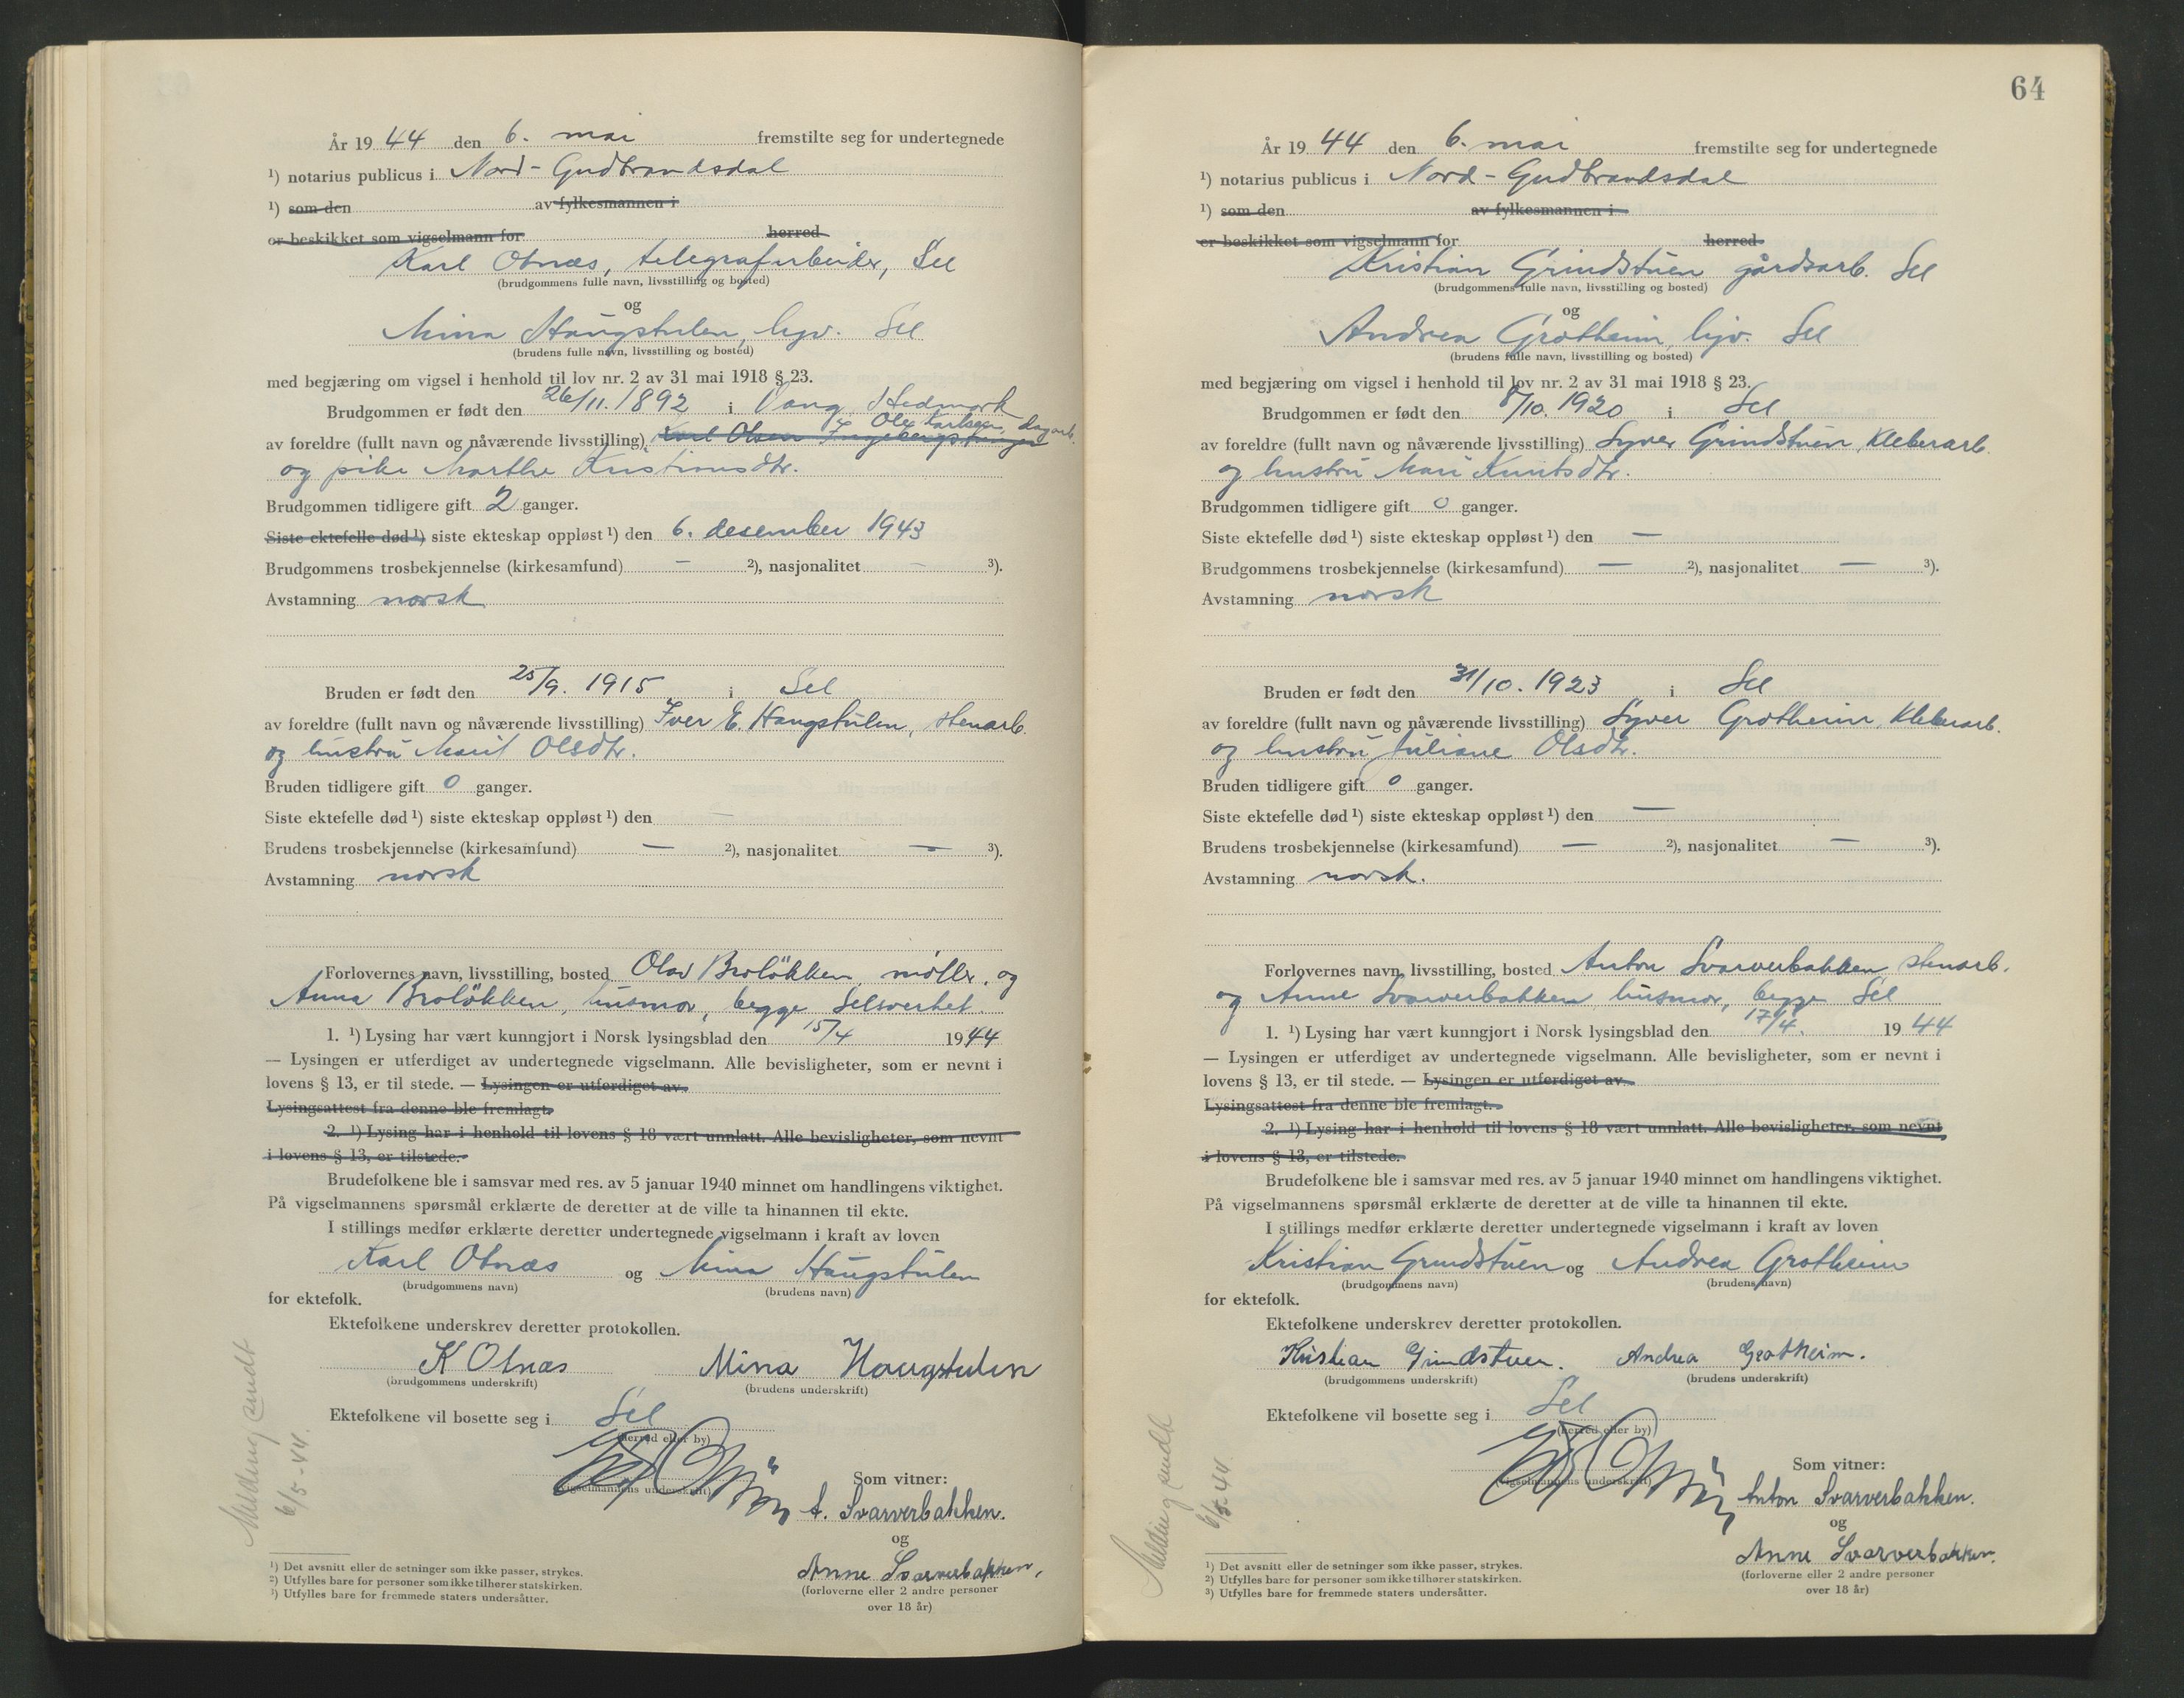 År 19 44 den 6. mai fremstilte seg for undertegnede
¹) notarius publicus i Nord-Gudbrandsdal
¹) som den av fylkesmannen i
er beskikket som vigselmann for herred
Karl Otnæs, telegrafarbeider, Sel
(brudgommens fulle navn, livsstilling og bosted)
og
Mina Haugstulen, hjv. Sel
(brudens fulle navn, livsstilling og bosted)
med begjæring om vigsel i henhold til lov nr. 2 av 31 mai 1918 § 23.
Brudgommen er født den 26/11. 1892 i Vang, Hedmark
Ole Karlsen, dagarb.
av foreldre (fullt navn og nåværende livsstilling) Karl Olsen
og pike Marthe Kristiansdtr.
Brudgommen tidligere gift 2 ganger.
Siste ektefelle død ¹) siste ekteskap oppløst ¹) den 6. desember 1943
Brudgommens trosbekjennelse (kirkesamfund) — ²), nasjonalitet — ³).
Avstamning norsk
Bruden er født den 25/9. 1915 i Sel
av foreldre (fullt navn og nåværende livsstilling) Iver E. Haugstulen, stenarb.
og hustru Marit Olsdtr.
Bruden tidligere gift 0 ganger.
Siste ektefelle død ¹) siste ekteskap oppløst ¹) den —
Brudens trosbekjennelse (kirkesamfund) — ²), nasjonalitet — ³).
Avstamning norsk
Forlovernes navn, livsstilling, bosted Olav Broløkken, møller, og
Anna Broløkken, husmor, begge Selsverket.
1. ¹) Lysing har vært kunngjort i Norsk lysingsblad den 15/4 1944
— Lysingen er utferdiget av undertegnede vigselmann. Alle bevisligheter, som er nevnt i
lovens § 13, er til stede. — Lysingen er utferdiget av
Lysingsattest fra denne ble fremlagt.
2. ¹) Lysing har i henhold til lovens § 18 vært unnlatt. Alle bevisligheter, som nevnt
i lovens § 13, er tilstede.
Brudefolkene ble i samsvar med res. av 5 januar 1940 minnet om handlingens viktighet.
På vigselmannens spørsmål erklærte de deretter at de ville ta hinannen til ekte.
I stillings medfør erklærte deretter undertegnede vigselmann i kraft av loven
Karl Otnæs og Mina Haugstulen
(brudgommens navn) (brudens navn)
for ektefolk.
Ektefolkene underskrev deretter protokollen.
K Otnæs Mina Haugstulen
(brudgommens underskrift) (brudens underskrift)
Ektefolkene vil bosette seg i Sel
(herred eller by)
(vigselmannens underskrift)
Som vitner:
A. Svarverbakken.
og
Anne Svarverbakken,
(forloverne eller 2 andre personer
over 18 år)
Melding sendt
6/5-44.
¹) Det avsnitt eller de setninger som ikke passer, strykes.
²) Utfylles bare for personer som ikke tilhører statskirken.
³) Utfylles bare for fremmede staters undersåtter.
64
År 19 44 den 6. mai fremstilte seg for undertegnede
¹) notarius publicus i Nord-Gudbrandsdal
¹) som den av fylkesmannen i
er beskikket som vigselmann for herred
Kristian Grindstuen gårdsarb. Sel
(brudgommens fulle navn, livsstilling og bosted)
og
Andrea Grotheim, hjv. Sel
(brudens fulle navn, livsstilling og bosted)
med begjæring om vigsel i henhold til lov nr. 2 av 31 mai 1918 § 23.
Brudgommen er født den 8/10. 1920 i Sel
av foreldre (fullt navn og nåværende livsstilling) Syver Grindstuen, kleberarb.
og hustru Mari Knutsdtr.
Brudgommen tidligere gift 0 ganger.
Siste ektefelle død ¹) siste ekteskap oppløst ¹) den —
Brudgommens trosbekjennelse (kirkesamfund) — ²), nasjonalitet — ³).
Avstamning norsk
Bruden er født den 31/10. 1923 i Sel
av foreldre (fullt navn og nåværende livsstilling) Syver Grotheim, kleberarb.
og hustru Juliane Olsdtr.
Bruden tidligere gift 0 ganger.
Siste ektefelle død ¹) siste ekteskap oppløst ¹) den —
Brudens trosbekjennelse (kirkesamfund) — ²), nasjonalitet — ³).
Avstamning norsk.
Forlovernes navn, livsstilling, bosted Anton Svarverbakken, stenarb.
og Anne Svarverbakken, husmor, begge Sel
1. ¹) Lysing har vært kunngjort i Norsk lysingsblad den 17/4. 19 44
— Lysingen er utferdiget av undertegnede vigselmann. Alle bevisligheter, som er nevnt i
lovens § 13, er til stede. — Lysingen er utferdiget av
Lysingsattest fra denne ble fremlagt.
2. ¹) Lysing har i henhold til lovens § 18 vært unnlatt. Alle bevisligheter, som nevnt
i lovens § 13, er tilstede.
Brudefolkene ble i samsvar med res. av 5 januar 1940 minnet om handlingens viktighet.
På vigselmannens spørsmål erklærte de deretter at de ville ta hinannen til ekte.
I stillings medfør erklærte deretter undertegnede vigselmann i kraft av loven
Kristian Grindstuen og Andrea Grotheim
(brudgommens navn) (brudens navn)
for ektefolk.
Ektefolkene underskrev deretter protokollen.
Kristian Grindstuen. Andrea Grotheim.
(brudgommens underskrift) (brudens underskrift)
Ektefolkene vil bosette seg i Sel
(herred eller by)
(vigselmannens underskrift)
Som vitner:
Anton Svarverbakken.
og
Anne Svarverbakken.
(forloverne eller 2 andre personer
over 18 år)
Melding sendt
6/5-44
¹) Det avsnitt eller de setninger som ikke passer, strykes.
²) Utfylles bare for personer som ikke tilhører statskirken.
³) Utfylles bare for fremmede staters undersåtter.